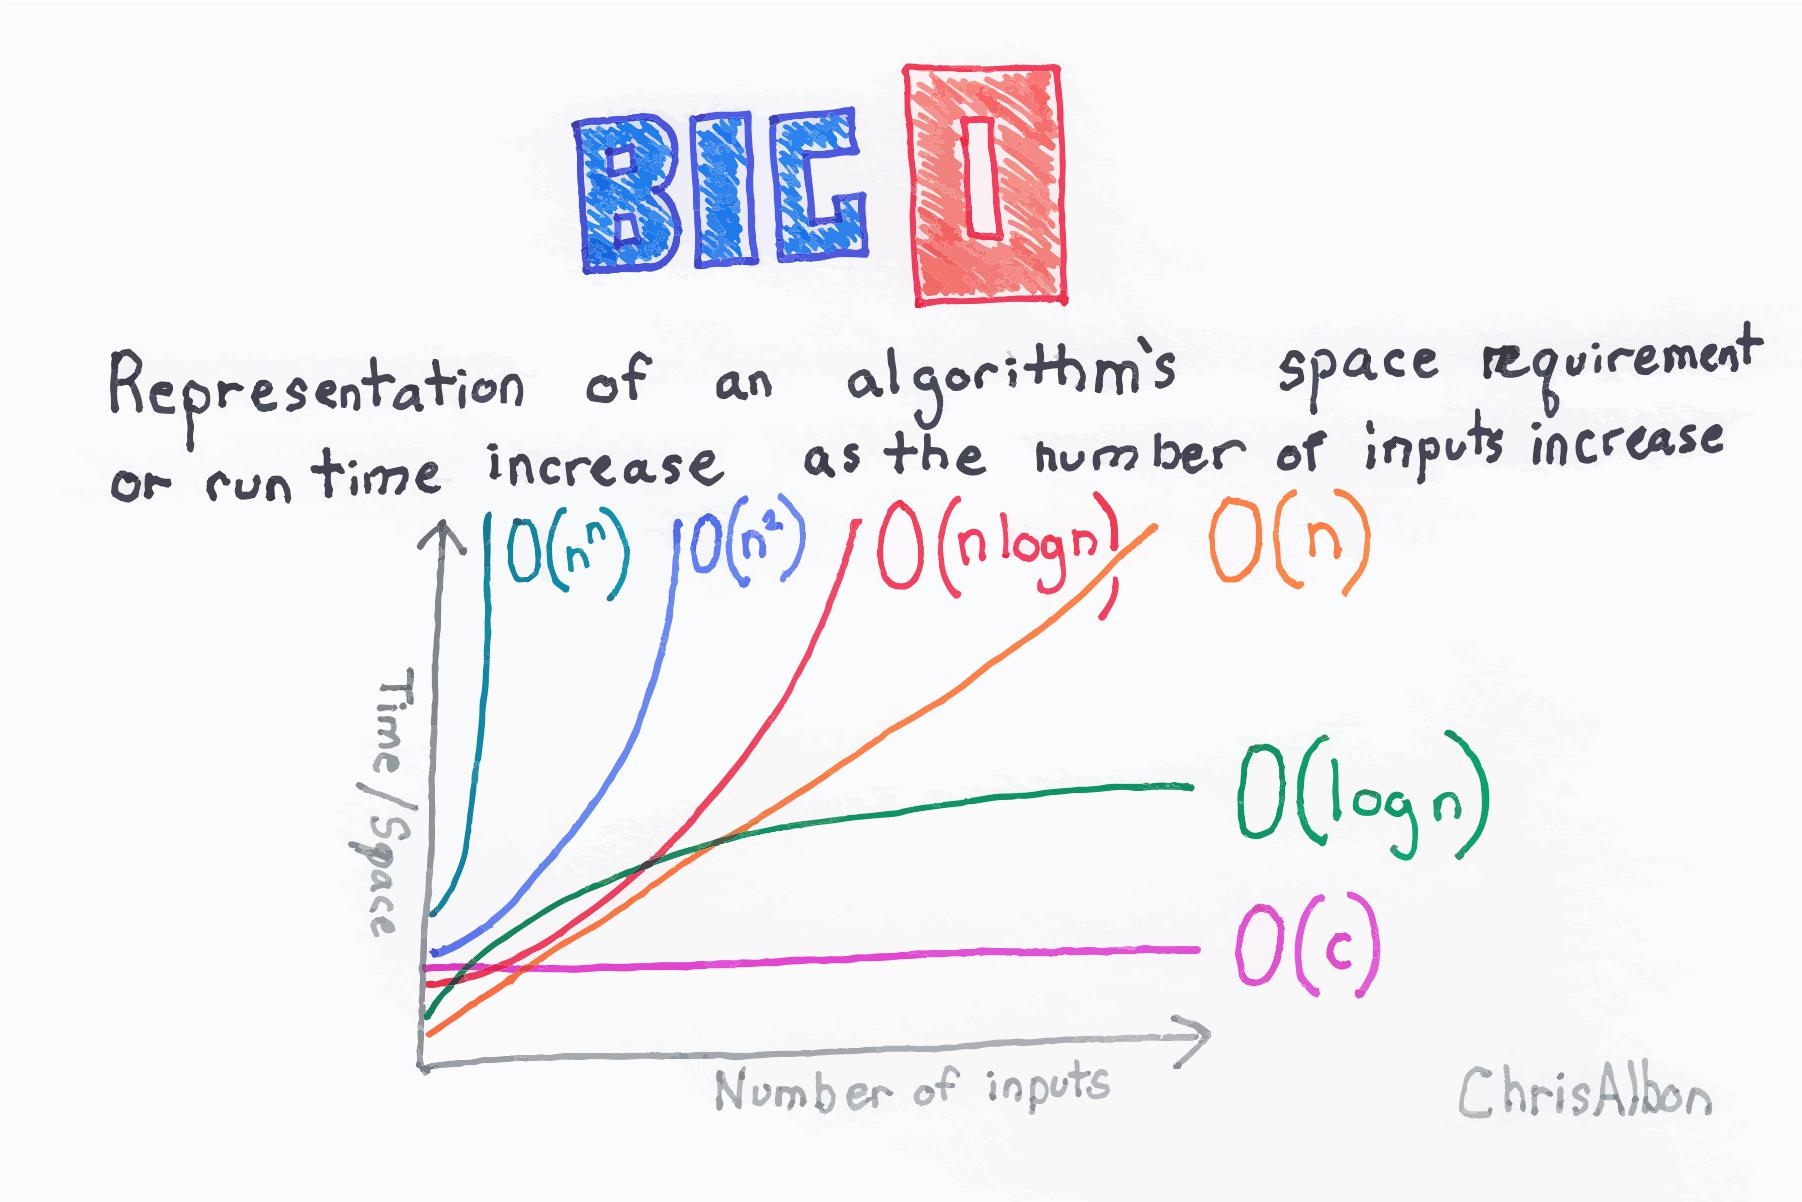 BIG O
Representation of an algorithm's space requirement
or run time increase as the number of inputs increase
O(nⁿ) O(n²) O(n log n) O(n)
Time/Space
O(log n)
O(c)
Number of inputs
ChrisAlbon